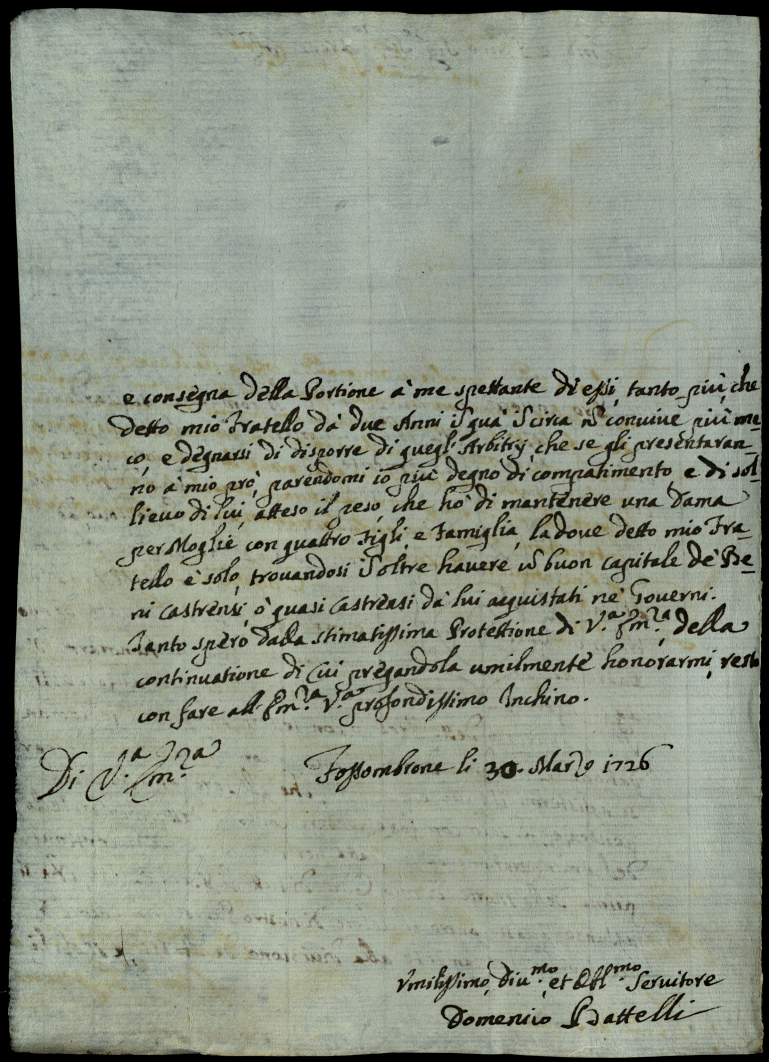 e consegna della Portione à me spettante di essi, tanto più, che
detto mio Fratello dà due Anni in quà in circa nò convive più me-
co, e degnarsi di disporre di quegli Arbitrij, che se gli presentaran-
no à mio prò, parendomi io più degno di compatimento, e di sol-
lievo di lui, atteso il peso, che hò di mantenere una Dama
per Moglie con quattro Figli, e Famiglia, ladove detto mio Fra-
tello è solo, trovandosi inoltre havere un buon capitale de Be-
ni Castrensi, ò quasi Castrensi dà lui acquistati ne Governi.
Tanto spero dalla stimatissima Protettione di V.ª Em.za, della
continuatione di cui pregandola umilmente honorarmi, resto
con fare all'Em.za V.ª profondissimo Inchino.
Di V.ª Em.za
Fossombrone li 30. Marzo 1726
Umilissimo, Div.mo, et Obl.mo Servitore
Domenico Battelli